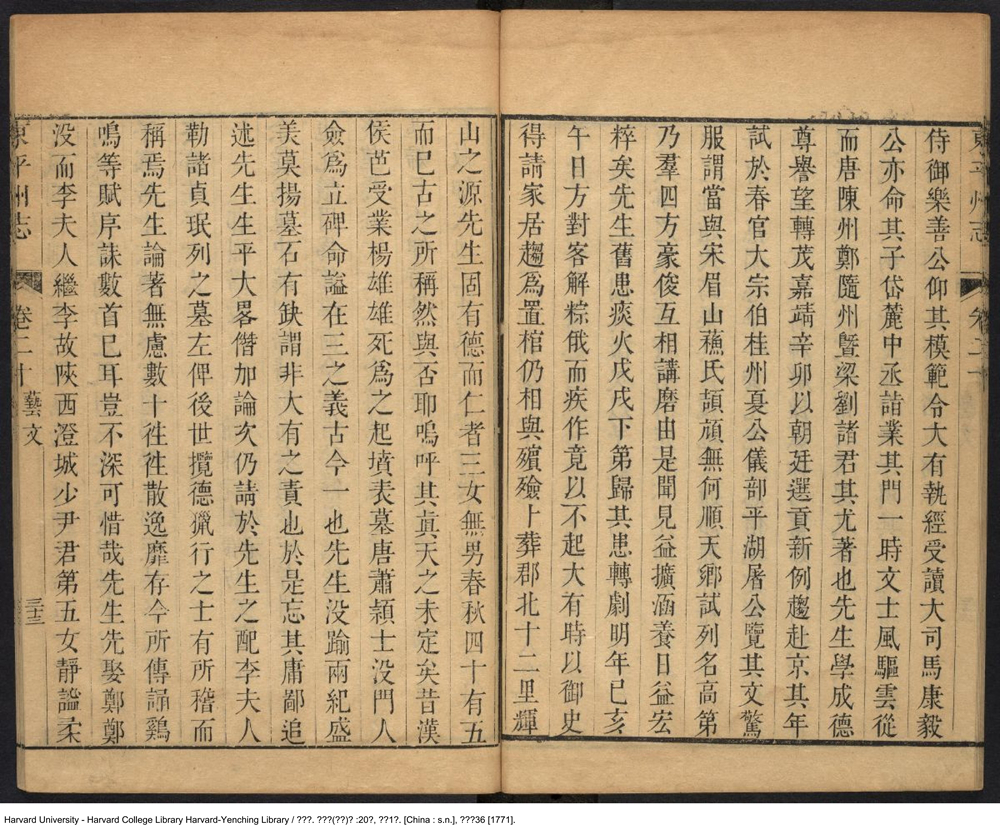 東平州志 卷二十
侍御樂善公仰其模範令大有執經受讀大司馬康毅
公亦命其子岱麓中丞詣業其門一時文士風驅雲從
而唐陳州鄭隨州暨梁劉諸君其尤著也先生學成德
尊譽望轉茂嘉靖辛卯以朝廷選貢新例趨赴京其年
試於春官大宗伯桂州夏公儀部平湖屠公覽其文驚
服謂當與宋眉山蘓氏頡頏無何順天鄉試列名高第
乃羣四方豪俊互相講磨由是聞見益擴涵養日益宏
粹矣先生舊患痰火戊戌下第歸其患轉劇明年己亥
午日方對客解粽俄而疾作竟以不起大有時以御史
得請家居趨爲置棺仍相與殯殮卜葬郡北十二里輝
山之源先生固有德而仁者三女無男春秋四十有五
而已古之所稱然與否耶嗚呼其眞天之未定矣昔漢
侯芭受業楊雄雄死爲之起墳表墓唐蕭穎士没門人
僉爲立碑命謚在三之義古今一也先生没踰兩紀盛
美莫揚墓石有缺謂非大有之責也於是忘其庸鄙追
述先生生平大畧僭加論次仍請於先生之配李夫人
勒諸貞珉列之墓左俾後世攬德獵行之士有所稽而
稱焉先生論著無慮數十徃徃散逸靡存今所傳誦鷄
鳴等賦序誄數首已耳豈不深可惜哉先生先娶鄭鄭
没而李夫人繼李故陜西澄城少尹君第五女靜謐柔
東平州志 卷二十 藝文 三十三
Harvard University - Harvard College Library Harvard-Yenching Library / ???. ???(??)? :20?, ??1?. [China : s.n.], ???36 [1771].